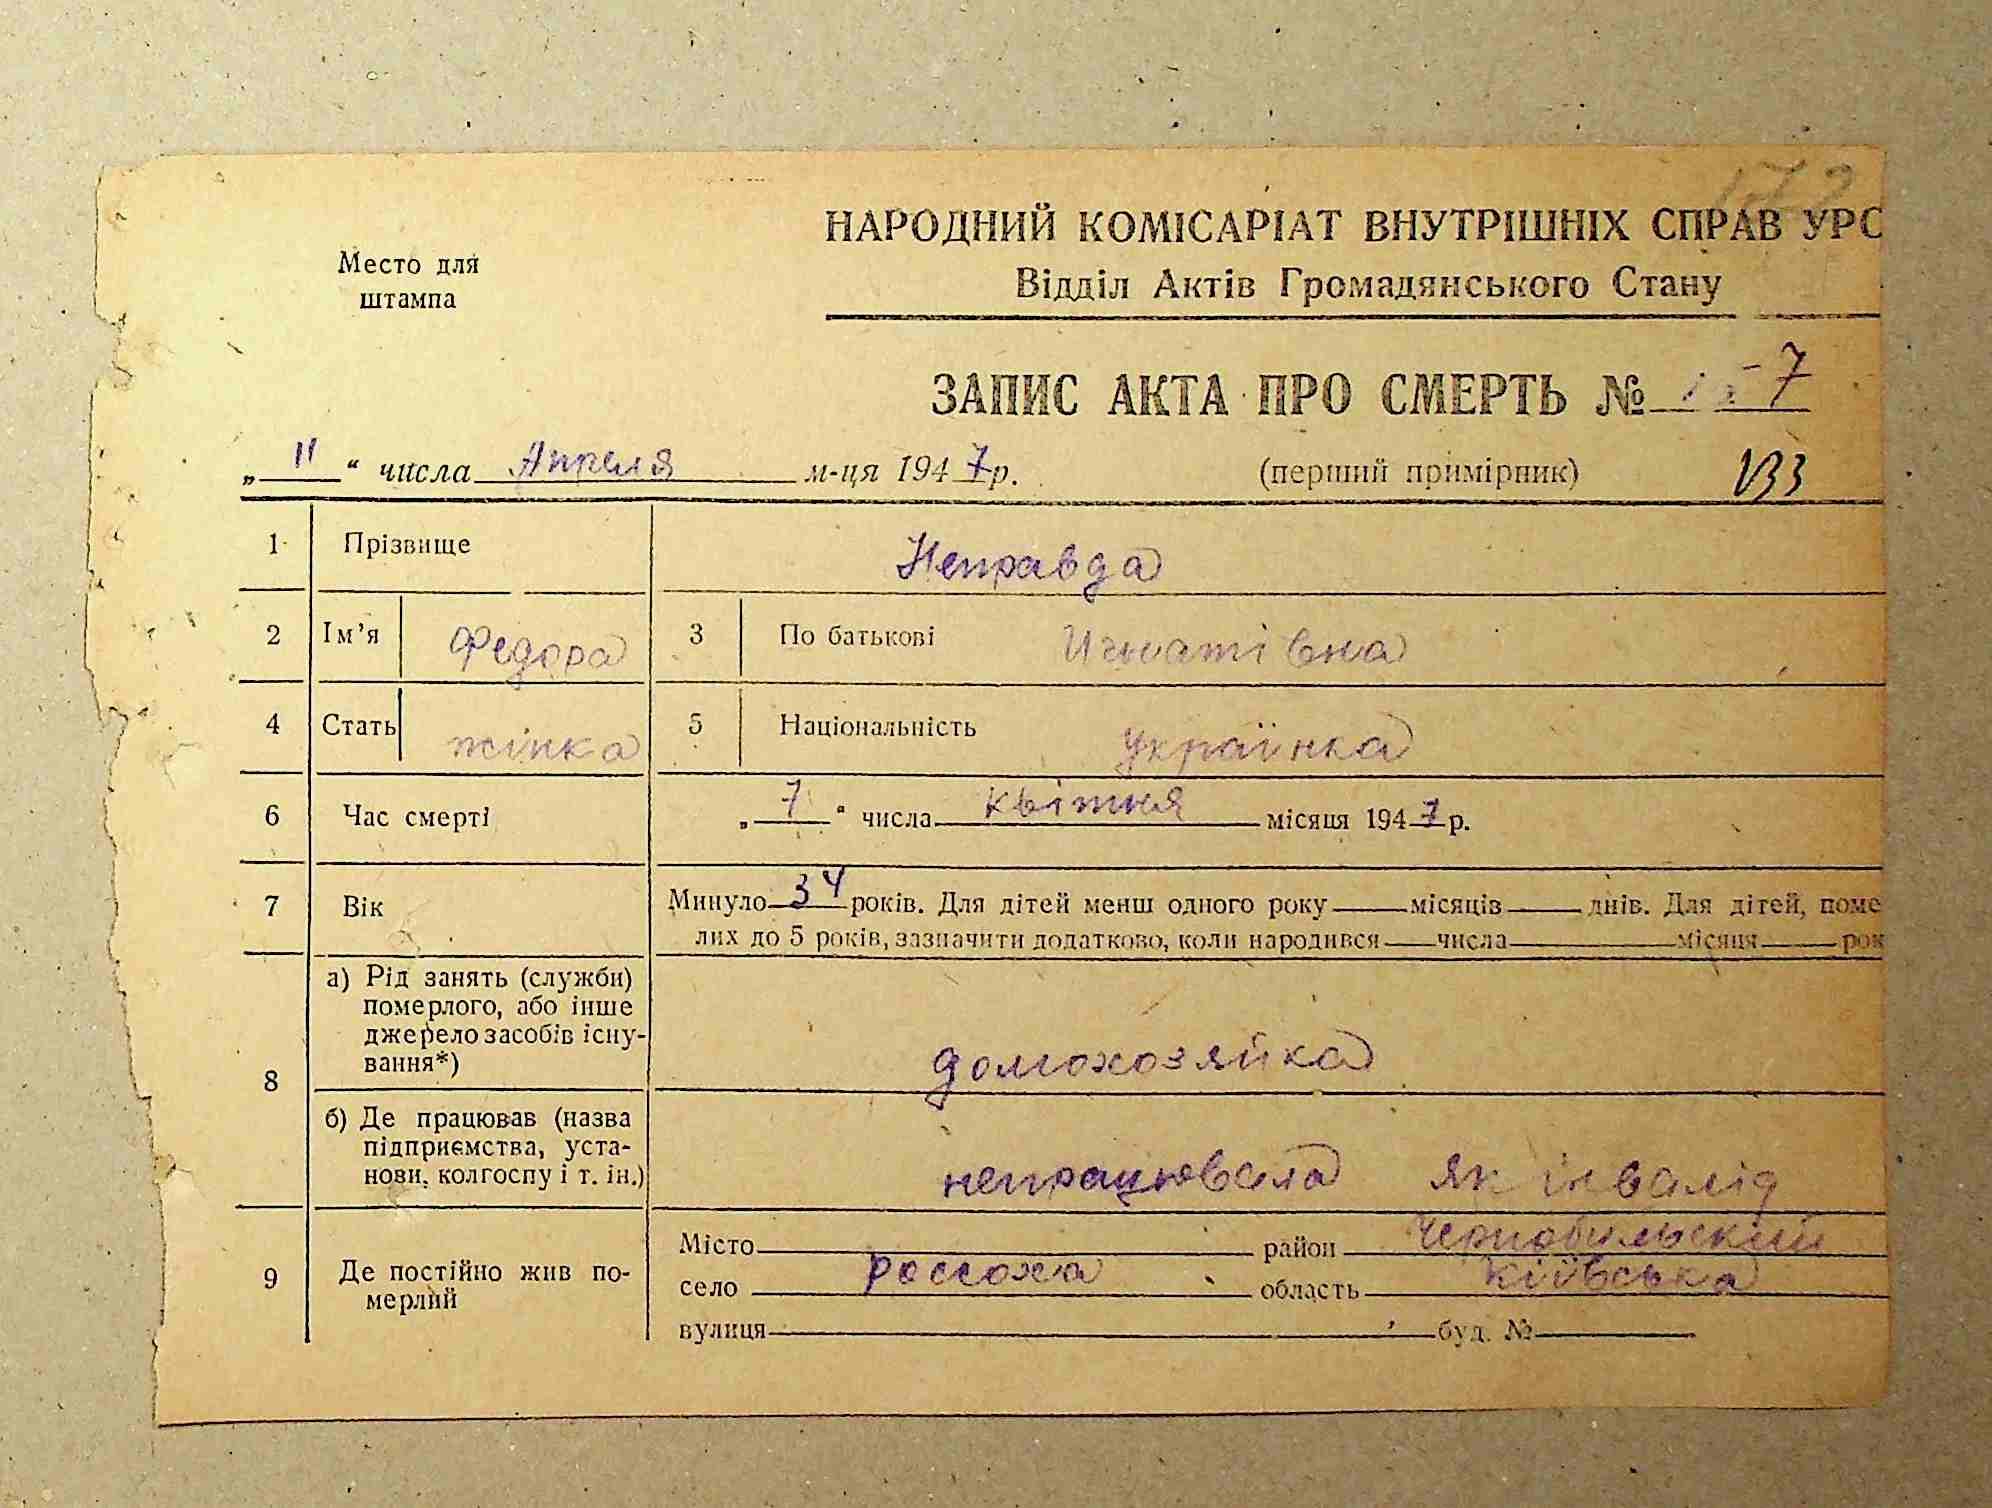 173
НАРОДНИЙ КОМІСАРІАТ ВНУТРІШНІХ СПРАВ УРС
Место для
штампа
Відділ Актів Громадянського Стану
ЗАПИС АКТА ПРО СМЕРТЬ № 157
„ 11 “ числа Апреля м-ця 1947 р. (перший примірник) 133
1 Прізвище Неправда
2 Ім’я Федора 3 По батькові Игнатівна
4 Стать жінка 5 Національність українка
6 Час смерті „ 7 “ числа квітня місяця 1947 р.
7 Вік Минуло 34 років. Для дітей менш одного року місяців днів. Для дітей, поме
лих до 5 років, зазначити додатково, коли народився числа місяця рок
8 а) Рід занять (служби)
померлого, або інше
джерело засобів існу-
вання*) домохозяйка
б) Де працював (назва
підприємства, уста-
нови, колгоспу і т. ін.) непрацювала як інвалід
9 Де постійно жив по-
мерлий
Місто район Чернобильский
село россоха область Київська
вулиця буд. №